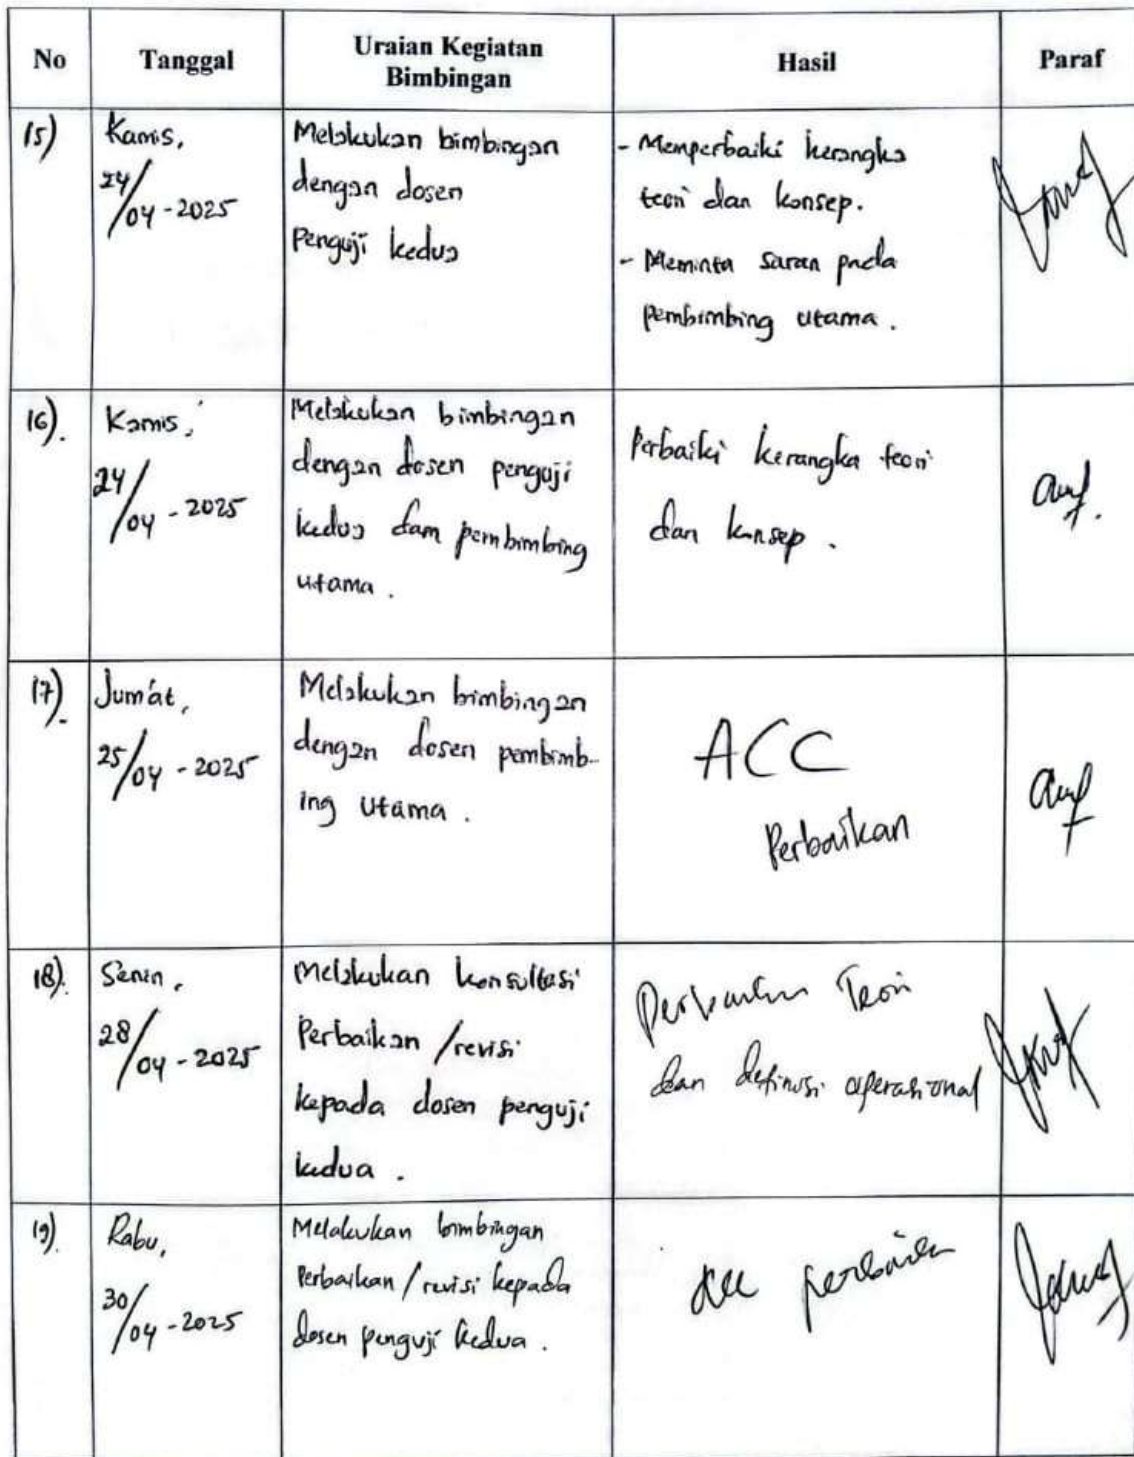 No
Tanggal
Uraian Kegiatan
Bimbingan
Hasil
Paraf
15)
Kamis,
24/04-2025
Melakukan bimbingan
dengan dosen
Penguji kedua
- Memperbaiki kerangka
teori dan konsep.
- Meminta saran pada
pembimbing utama.
16).
Kamis,
24/04-2025
Melakukan bimbingan
dengan dosen penguji
kedua dam pembimbing
utama.
Perbaiki kerangka teori
dan konsep.
17).
Jum'at,
25/04-2025
Melakukan bimbingan
dengan dosen pembimb-
ing utama.
ACC
Perbaikan
18).
Senin,
28/04-2025
Melakukan konsultasi
Perbaikan/revisi
kepada dosen penguji
kedua.
Perbaikan Teori
dan definisi operasional
19).
Rabu,
30/04-2025
Melakukan bimbingan
Perbaikan/revisi kepada
dosen penguji kedua.
acc perbaikan